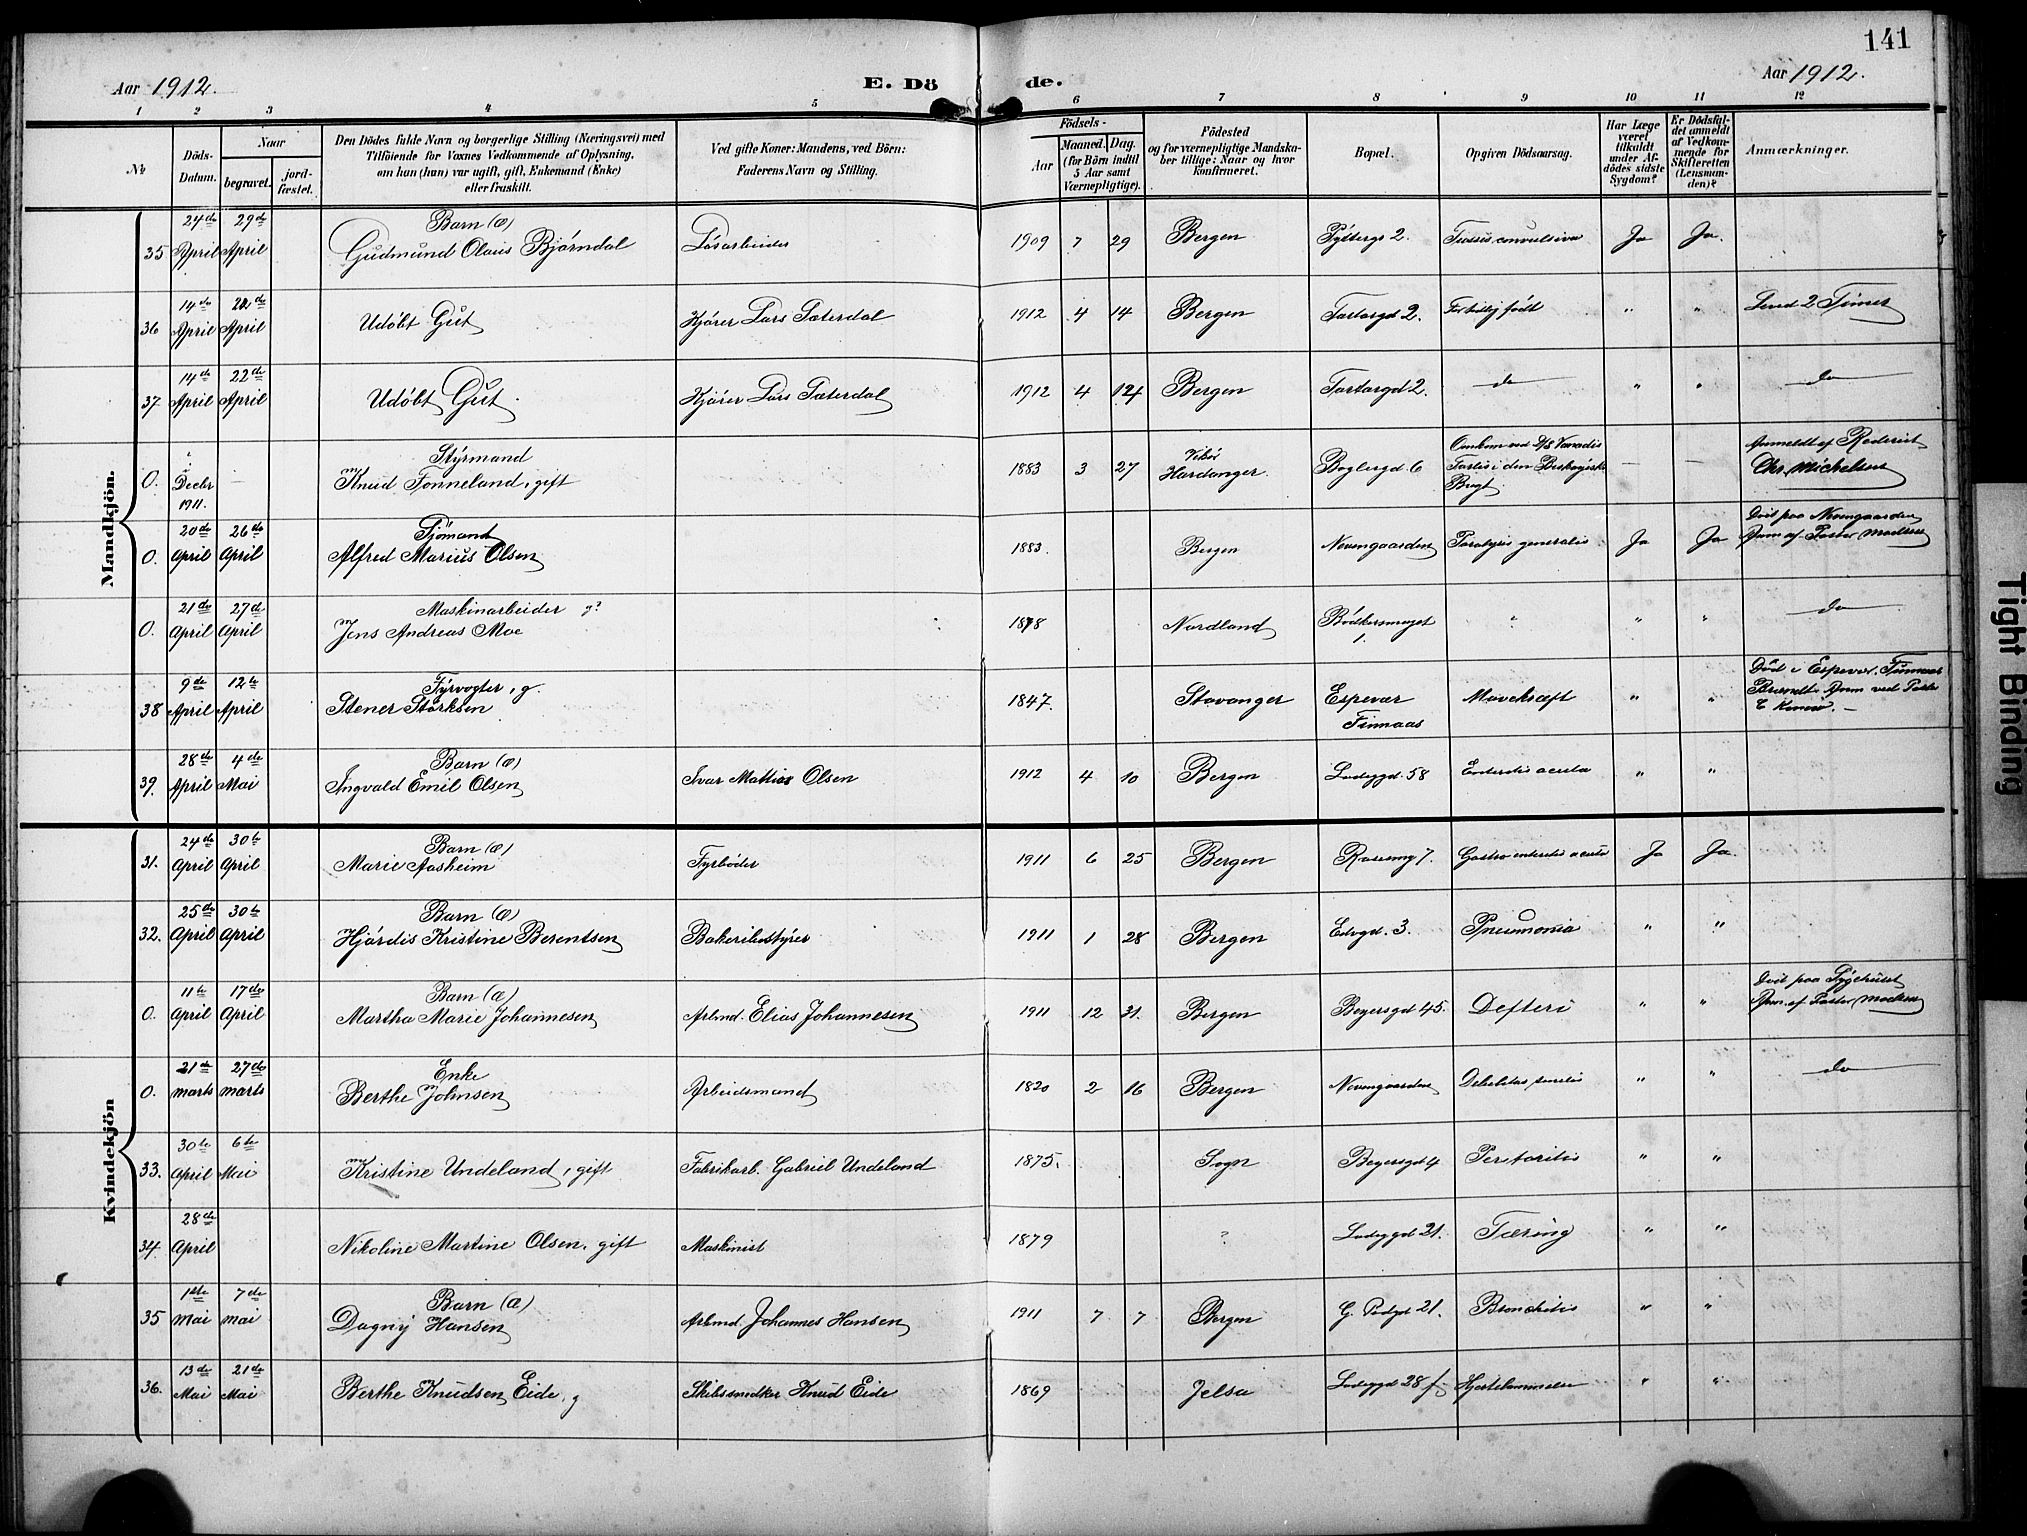 141
Aar 1912.
E. Dö de.
Aar 1912.
1 2 3 4 5 6 7 8 9 10 11 12
No
Döds-Datum.
Naar
begravet.
jord-fæstet.
Den Dödes fulde Navn og borgerlige Stilling (Næringsvei) med
Tilföiende for Voxnes Vedkommende af Oplysning,
om han (hun) var ugift, gift, Enkemand (Enke)
eller fraskilt.
Ved gifte Koner: Mandens, ved Börn:
Faderens Navn og Stilling.
Födsels-
Aar
Maaned. Dag.
(for Börn indtil
5 Aar samt
Værnepligtige).
Födested
og for værnepligtige Mandska-
ber tillige: Naar og hvor
konfirmeret.
Bopæl.
Opgiven Dödsaarsag.
Har Læge
været
tilkaldt
under Af-
dödes sidste
Sygdom?
Er Dödsfal-
det anmeldt
af Vedkom-
mende for
Skifteretten
(Lensman-
den)?
Anmærkninger.
Mandkjön.
35 24de April 29de April Barn (æ) Gudmund Olaus Bjørndal Løsarbeider 1909 7 29 Bergen 2. Tussis convulsiva Ja Ja.
36 14de April 22de April Udøbt Gut Kjører Lars Sæterdal 1912 4 14 Bergen 2. For tidlig født " " Levd 2 Timer
37 14de April 22de April Udøbt Gut Kjører Lars Sæterdal 1912 4 14 Bergen 2. do " " do
0. Decbr 1911. — Styrmand Knud Fonneland, gift 1883 3 27 Vikør Hardanger 6 Omkom ved D/S Vanadis Forlis i den Biskayiske Bugt — — Anmeldt af Rederiet Chr. Michelsen
0. 20de April 26de April Sjømand Alfred Marius Olsen 1883. Bergen Nevengaarden Paralysis generalis Ja Ja Død paa Nevengaarden Anm af Pastor Madsen
0. 21de April 27de April Maskinarbeider g? Jens Andreas Moe 1878 Nordland Bødkersmuget 1. " " " do
38 9de April 12te April Fyrvogter, g. Stener Størksen 1847. Stavanger Espevær Finnaas Mavekræft " " Død i Espevær, Finnaas
39. 28de April 4de Mai Barn (æ) Ingvald Emil Olsen Ivar Mathias Olsen 1912 4 10 Bergen Ladeggd. 58 Enteritis acuta " "
Kvindekjön
31. 24de April 30te April Barn (æ) Marie Aasheim Fyrbøder 1911 6 25 Bergen 7. Gastro enteritis acuta Ja Ja.
32. 25de April 30te April Barn (æ) Hjørdis Kristine Berentsen Bakeribestyrer 1911 1 28 Bergen 3. Pneumonia " "
0. 11te April 17de April Barn (æ) Martha Marie Johannesen Arbmd. Elias Johannesen 1911 12 31. Bergen Beyersgd 45. Defteri " " Død paa Sygehuset Anm. af Pastor Madsen
0. 21de marts 27de marts Enke Berthe Johnsen Arbeidsmand 1820 2 16 Bergen Nevengaarden Debilitas senilis " " do
33. 30te April 6te Mai Kristine Undeland, gift Fabrikarb. Gabriel Undeland 1875. Sogn Beyersgd 4 " "
34. 28de April Nikoline Martine Olsen, gift Maskinist 1879 ? Ladeggd 21. Tæring " "
35 1ste Mai 7de mai Barn (æ) Dagny Hansen Arbmd. Johannes Hansen 1911 7 7 Bergen 21. Bronchitis " "
36. 13de Mai 21de Mai Berthe Knudsen Eide, g Skibssnedker Knud Eide 1869 Jelsa Ladeggd 28 f " "
Tight Binding